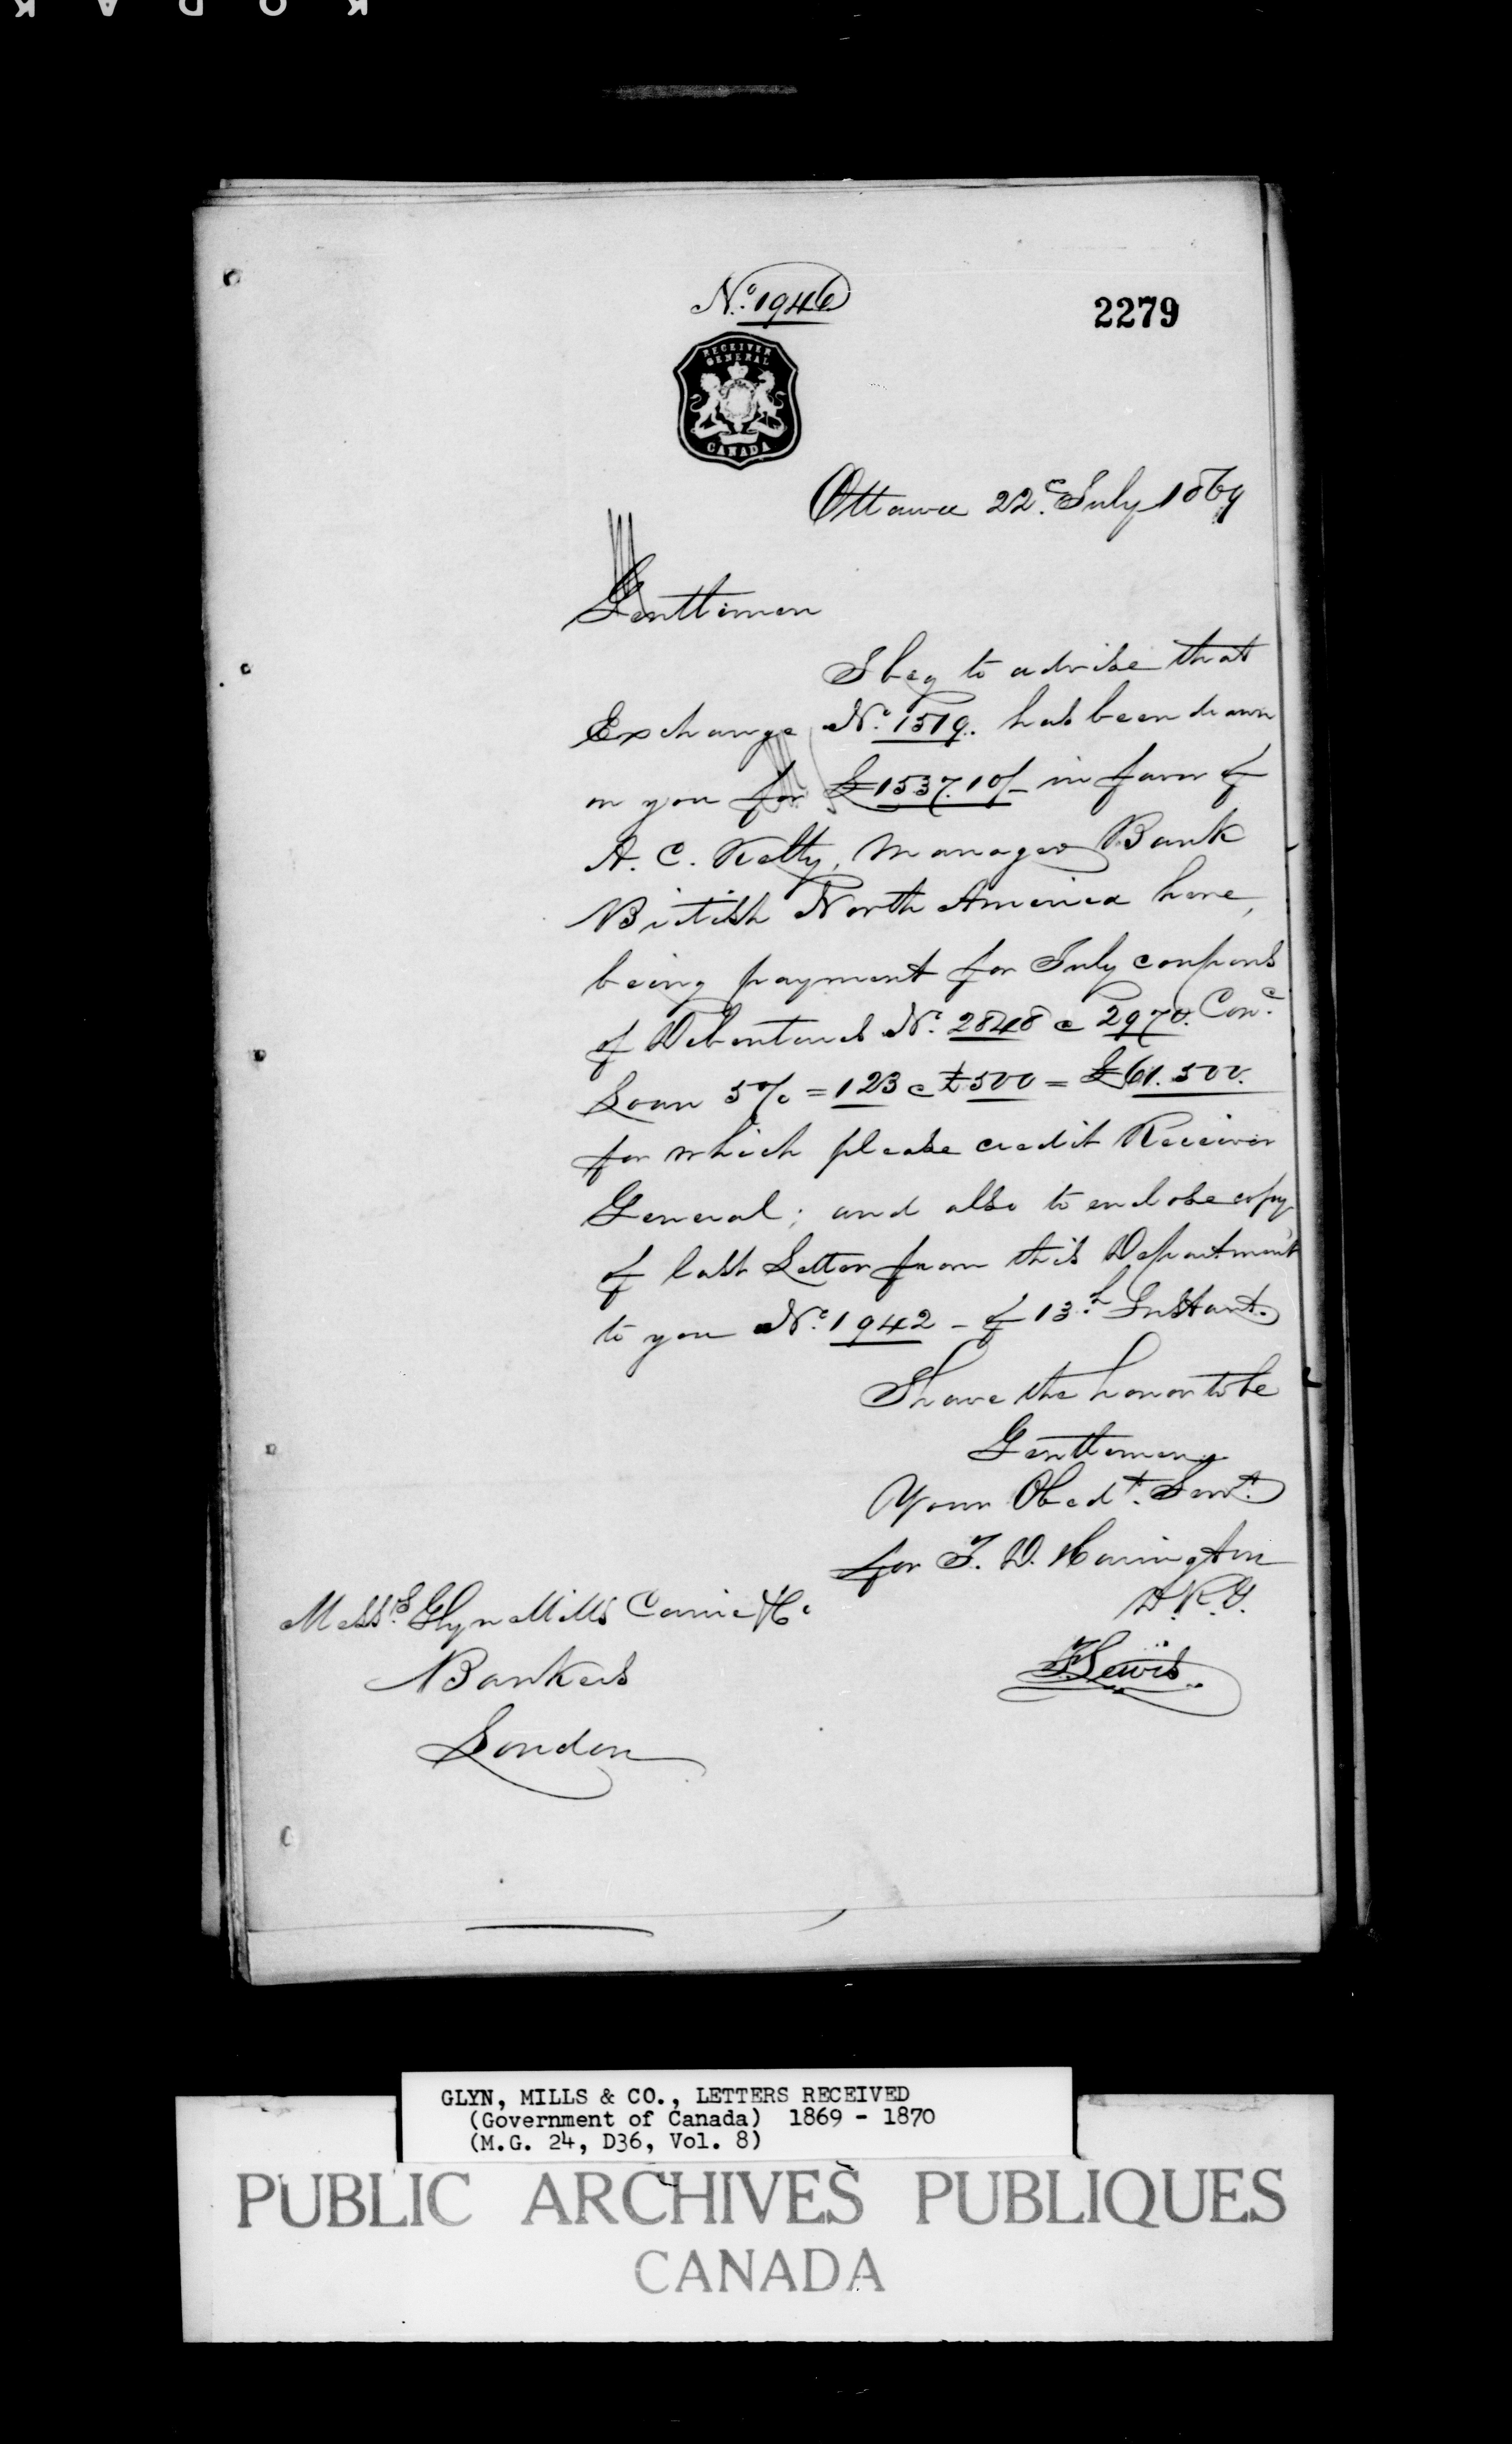 KODAK
No. 1946
2279
RECEIVER
GENERAL
CANADA
Ottawa 22d. July 1869
Gentlemen
I beg to advise that
Exchange No. 1519. has been drawn
on you for £1537.10/- in favor of
A. C. Kelty, Manager Bank
British North America here,
being payment for July coupons
of Debentures No. 2848 @ 2970. Con.d
Loan 5% = 123 @ £500 = £61.500.
for which please credit Receiver
General; and also to enclose copy
of last Letter from this Department
to you No. 1942 - of 13.th Instant.
I have the honor to be
Gentlemen
Your Obedt. Servt.
for T. D. Harington
D.R.G.
Messrs. Glyn Mills Currie & Co
T. Lewis
Bankers
London
GLYN, MILLS & CO., LETTERS RECEIVED
(Government of Canada) 1869 - 1870
(M.G. 24, D36, Vol. 8)
PUBLIC ARCHIVES PUBLIQUES
CANADA